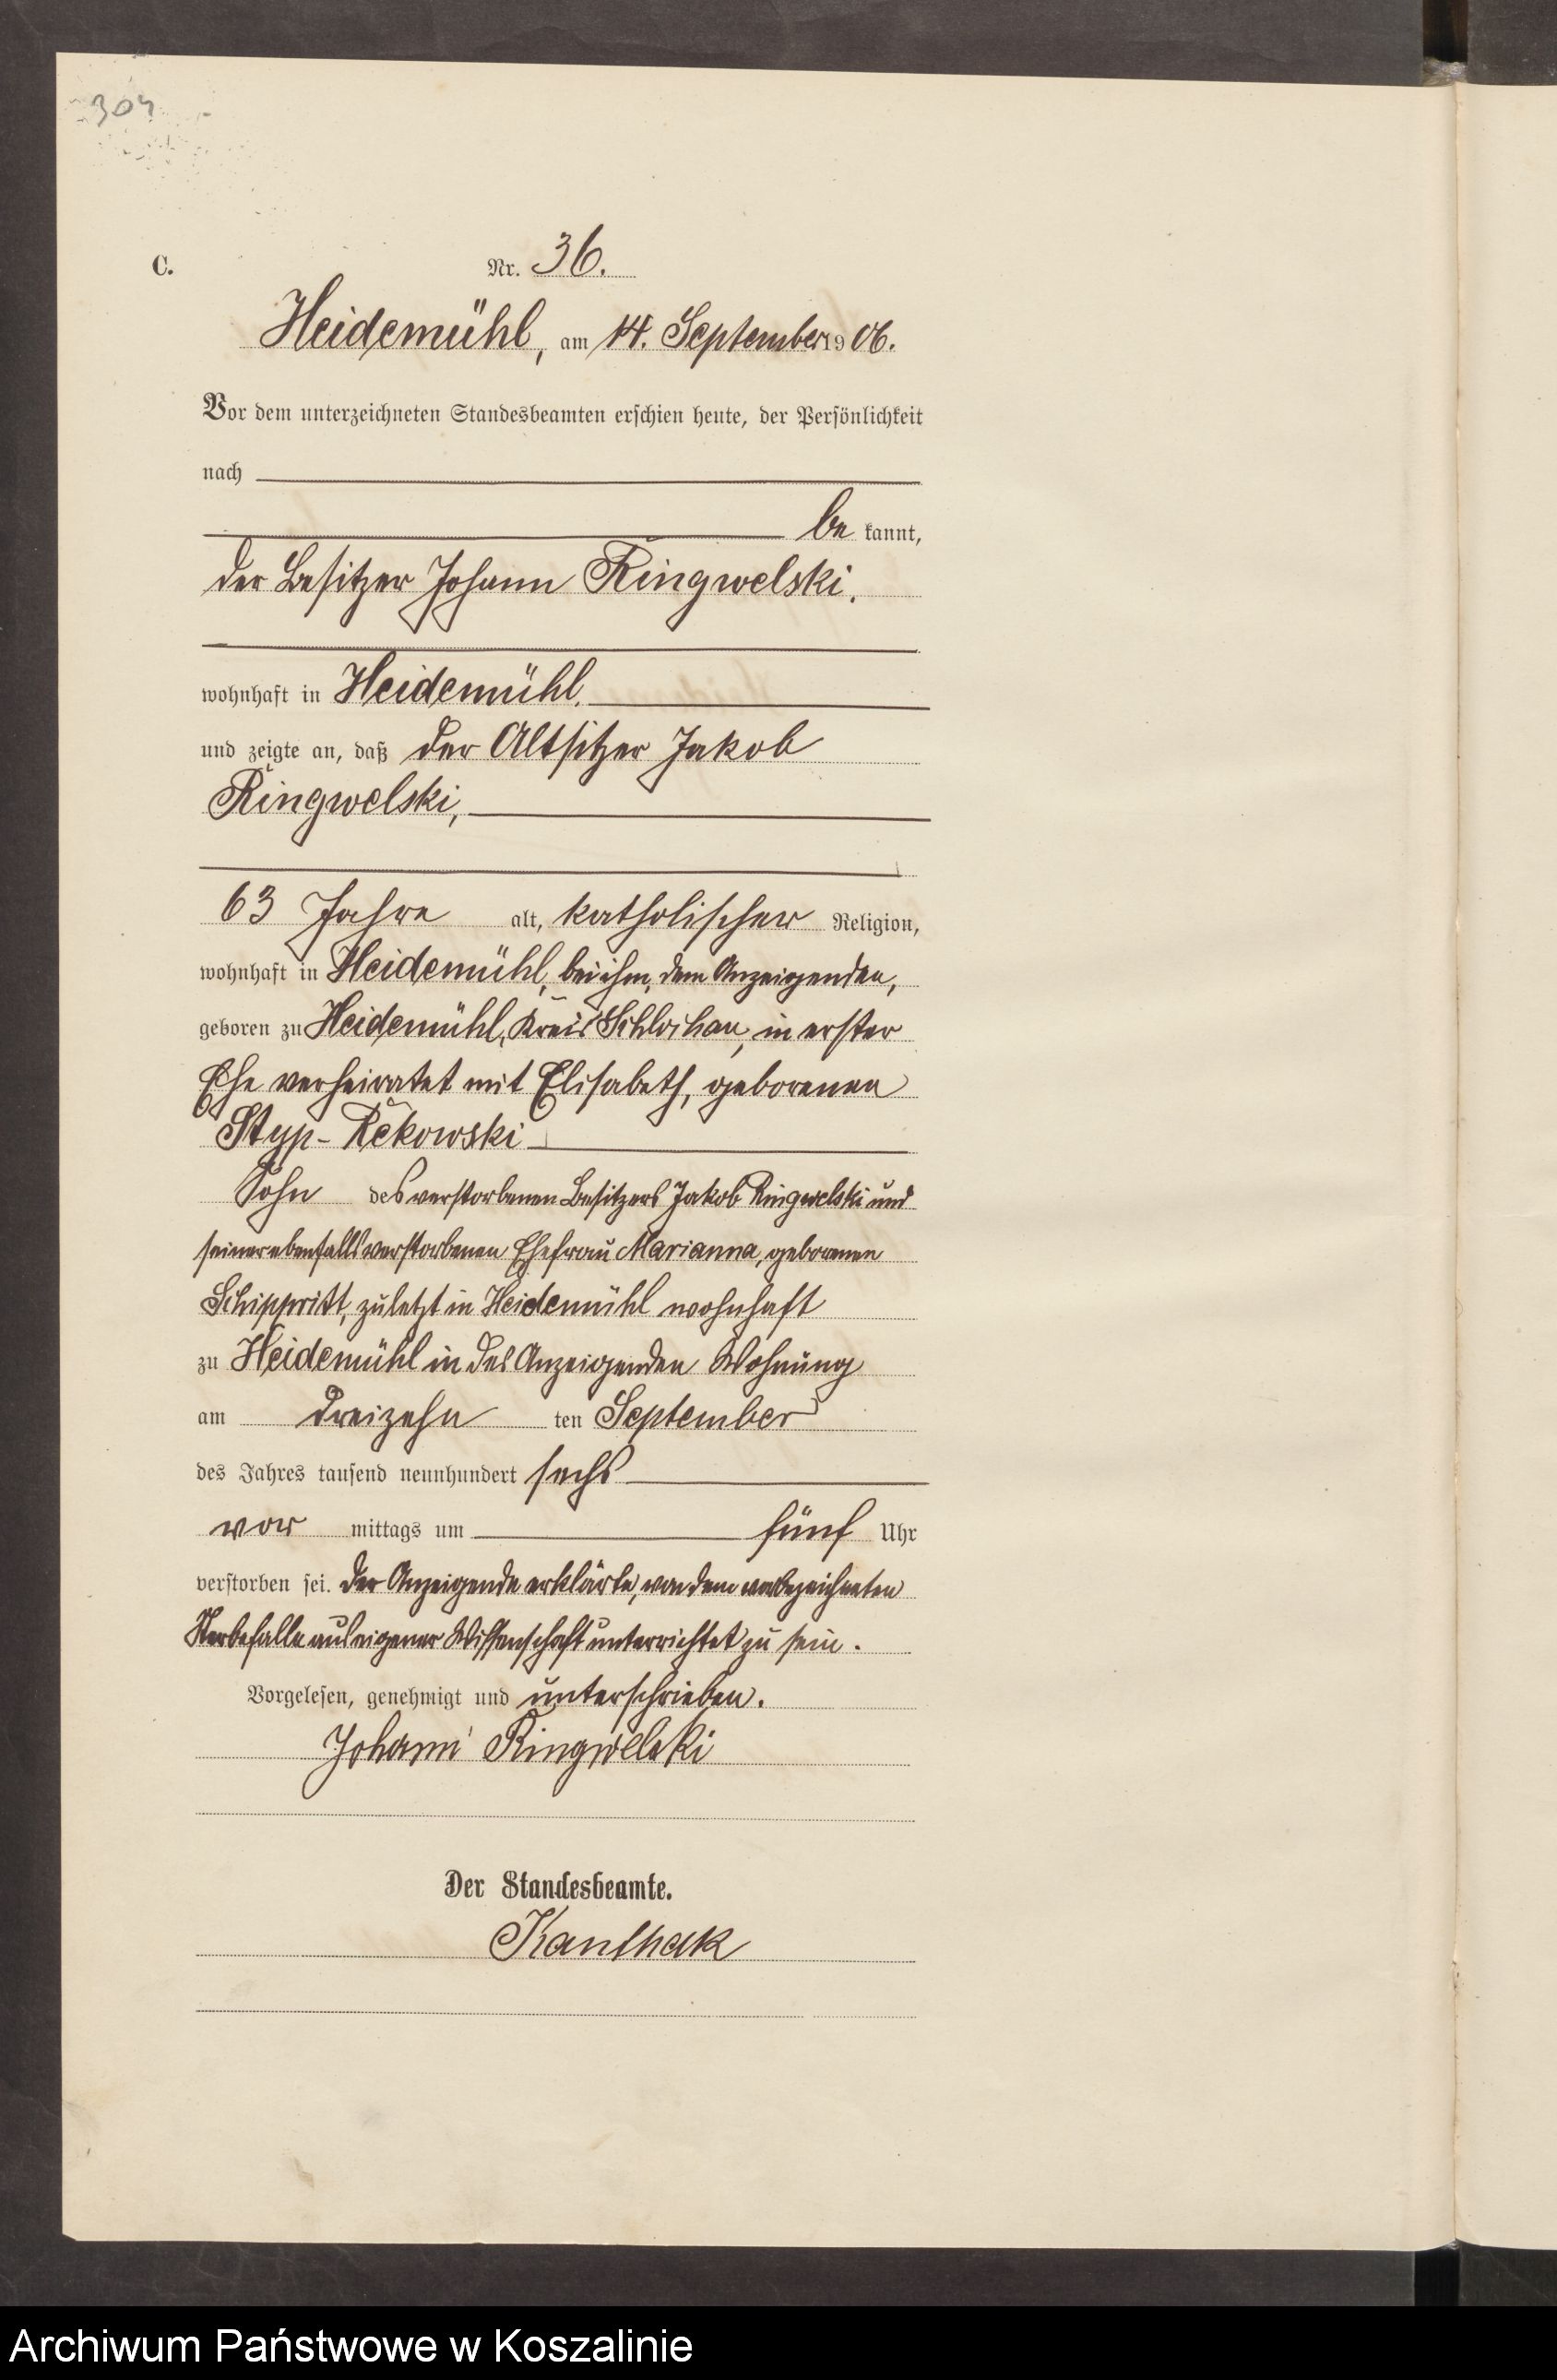 304
C.
Nr. 36.
Heidemühl, am 14. September 1906.
Vor dem unterzeichneten Standesbeamten erschien heute, der Persönlichkeit
nach
be kannt,
der Besitzer Johann Ringwelski.
wohnhaft in Heidemühl.
und zeigte an, daß der Altsitzer Jakob
Ringwelski,
63 Jahre alt, katholischer Religion,
wohnhaft in Heidemühl, bei ihm, dem Anzeigenden,
geboren zu Heidemühl, Kreis Schlochau, in erster
Ehe verheiratet mit Elisabeth, geborenen
Styp-Rekowski
Sohn des verstorbenen Besitzers Jakob Ringwelski und
seiner ebenfalls verstorbenen Ehefrau Marianna, geborenen
Schippritt, zuletzt in Heidemühl wohnhaft
zu Heidemühl in des Anzeigenden Wohnung
am dreizehn ten September
des Jahres tausend neunhundert sechs
vor mittags um fünf Uhr
verstorben sei. Der Anzeigende erklärte, von dem vorbezeichneten
Sterbefalle aus eigener Wissenschaft unterrichtet zu sein.
Vorgelesen, genehmigt und unterschrieben.
Johann Ringwelski
Der Standesbeamte.
Kanthak
Archiwum Państwowe w Koszalinie